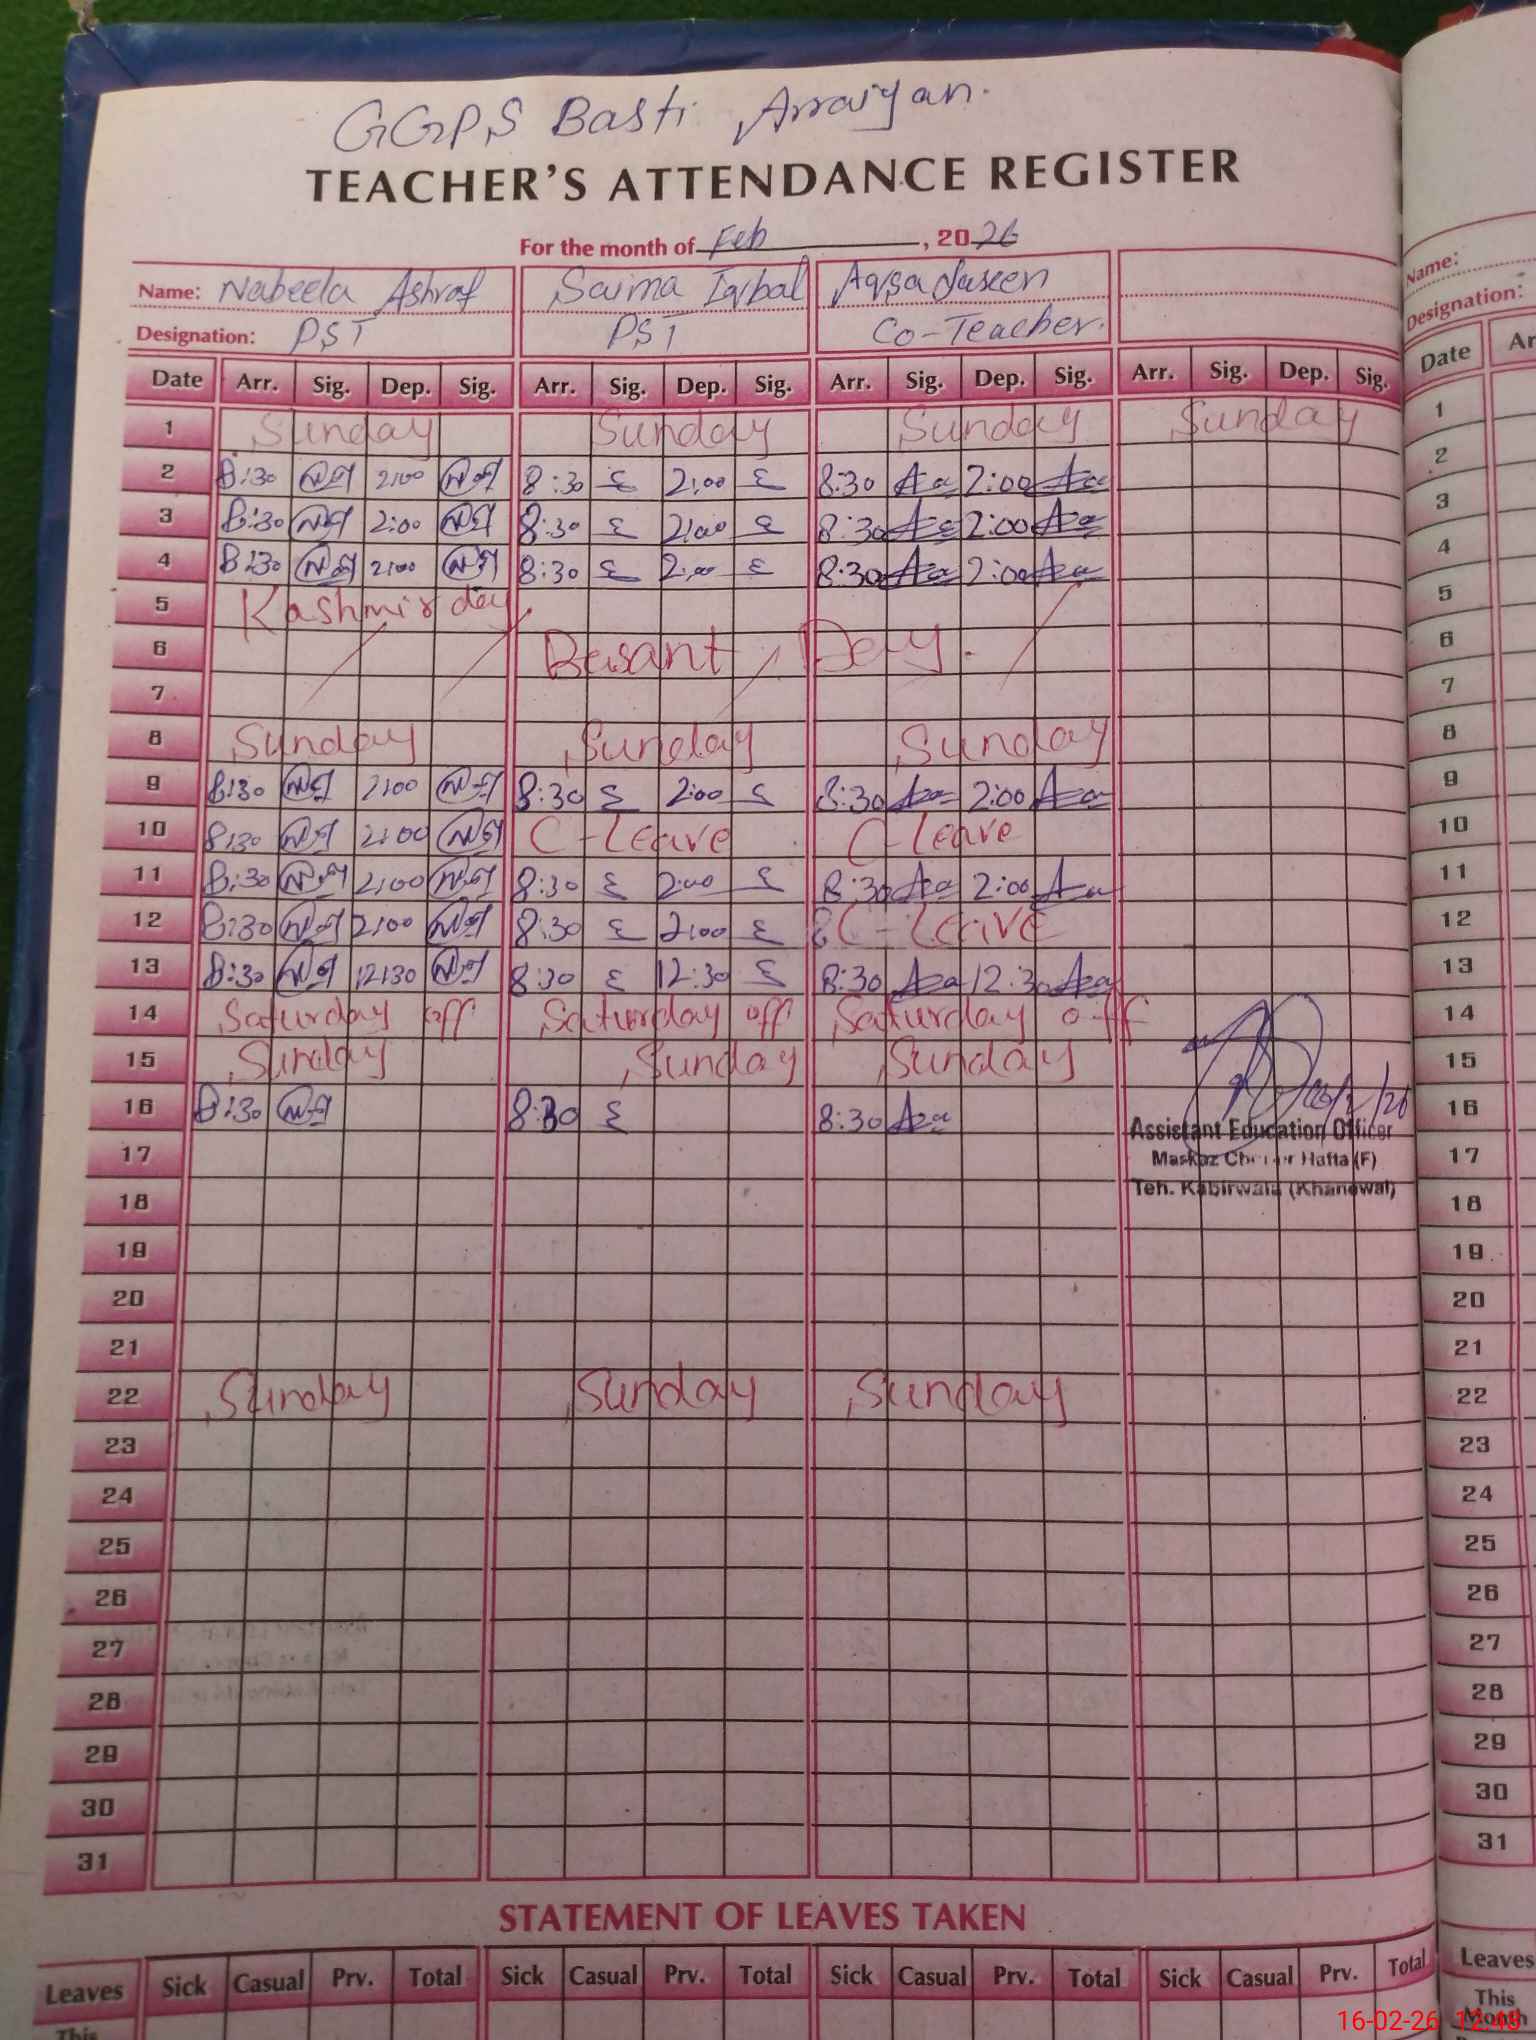 GGPS Basti Arraiyan.
TEACHER'S ATTENDANCE REGISTER
For the month of Feb, 2026
Name: Nabeela Ashraf Saima Iqbal Aqsa Yaseen
Designation: PST PST Co-Teacher.
Date Arr. Sig. Dep. Sig. Arr. Sig. Dep. Sig. Arr. Sig. Dep. Sig. Arr. Sig. Dep. Sig.
1 Sunday Sunday Sunday Sunday
2 8:30 2:00 8:30 2:00 8:30 2:00
3 8:30 2:00 8:30 2:00 8:30 2:00
4 8:30 2:00 8:30 2:00 8:30 2:00
5 Kashmir day
6 Basant Day.
7
8 Sunday Sunday Sunday
9 8:30 2:00 8:30 2:00 8:30 2:00
10 8:30 2:00 C-Leave C-Leave
11 8:30 2:00 8:30 2:00 8:30 2:00
12 8:30 2:00 8:30 2:00 C-Leave
13 8:30 12:30 8:30 12:30 8:30 12:30
14 Saturday off Saturday off Saturday off
15 Sunday Sunday Sunday
16 8:30 8:30 8:30
Assistant Education Officer
17
Teh. Kabirwala (Khanewal)
18
19
20
21
22 Sunday Sunday Sunday
23
24
25
26
27
28
29
30
31
STATEMENT OF LEAVES TAKEN
Leaves Sick Casual Prv. Total Sick Casual Prv. Total Sick Casual Prv. Total Sick Casual Prv. Total
This
Name:
Designation:
Date Ar
1
2
3
4
5
6
7
8
9
10
11
12
13
14
15
16
17
18
19
20
21
22
23
24
25
26
27
28
29
30
31
Leaves
This
Month
16-02-26 12:48